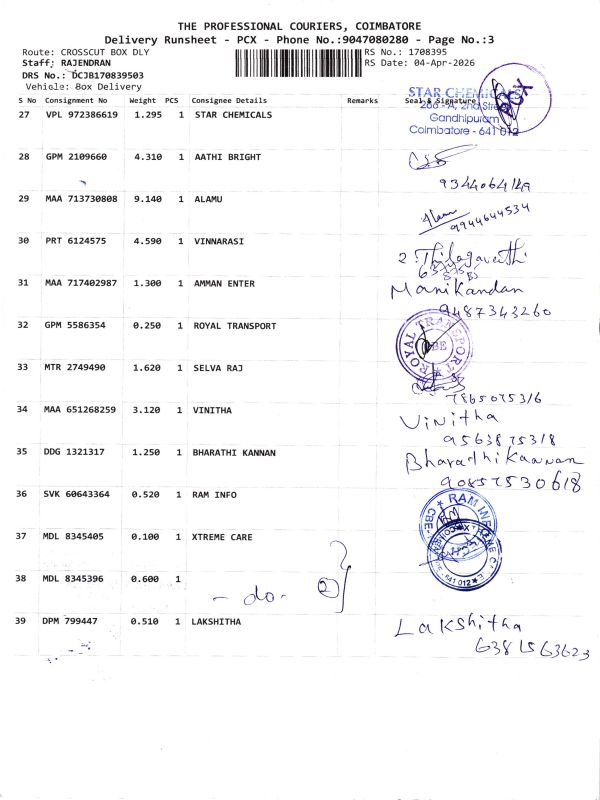 THE PROFESSIONAL COURIERS, COIMBATORE
Delivery Runsheet - PCX - Phone No.:9047080280 - Page No.:3
Route: CROSSCUT BOX DLY RS No.: 1708395
Staff: RAJENDRAN RS Date: 04-Apr-2026
DRS No.: DCJB170839503
Vehicle: Box Delivery
S No Consignment No Weight PCS Consignee Details Remarks Seal & Signature
STAR CHEMICALS
PCX
2nd Street
Gandhipuram
Coimbatore - 641 012
27 VPL 972386619 1.295 1 STAR CHEMICALS
28 GPM 2109660 4.310 1 AATHI BRIGHT
29 MAA 713730808 9.140 1 ALAMU
9944644534
30 PRT 6124575 4.590 1 VINNARASI
31 MAA 717402987 1.300 1 AMMAN ENTER
Manikandan
9487343260
32 GPM 5586354 0.250 1 ROYAL TRANSPORT
ROYAL TRANSPORT
CBE
33 MTR 2749490 1.620 1 SELVA RAJ
34 MAA 651268259 3.120 1 VINITHA
Vinitha
35 DDG 1321317 1.250 1 BHARATHI KANNAN
Bharathi Kannan
36 SVK 60643364 0.520 1 RAM INFO
RAM INFO
37 MDL 8345405 0.100 1 XTREME CARE
38 MDL 8345396 0.600 1
- do - 2
641 012
39 DPM 799447 0.510 1 LAKSHITHA
Lakshitha
6381563623